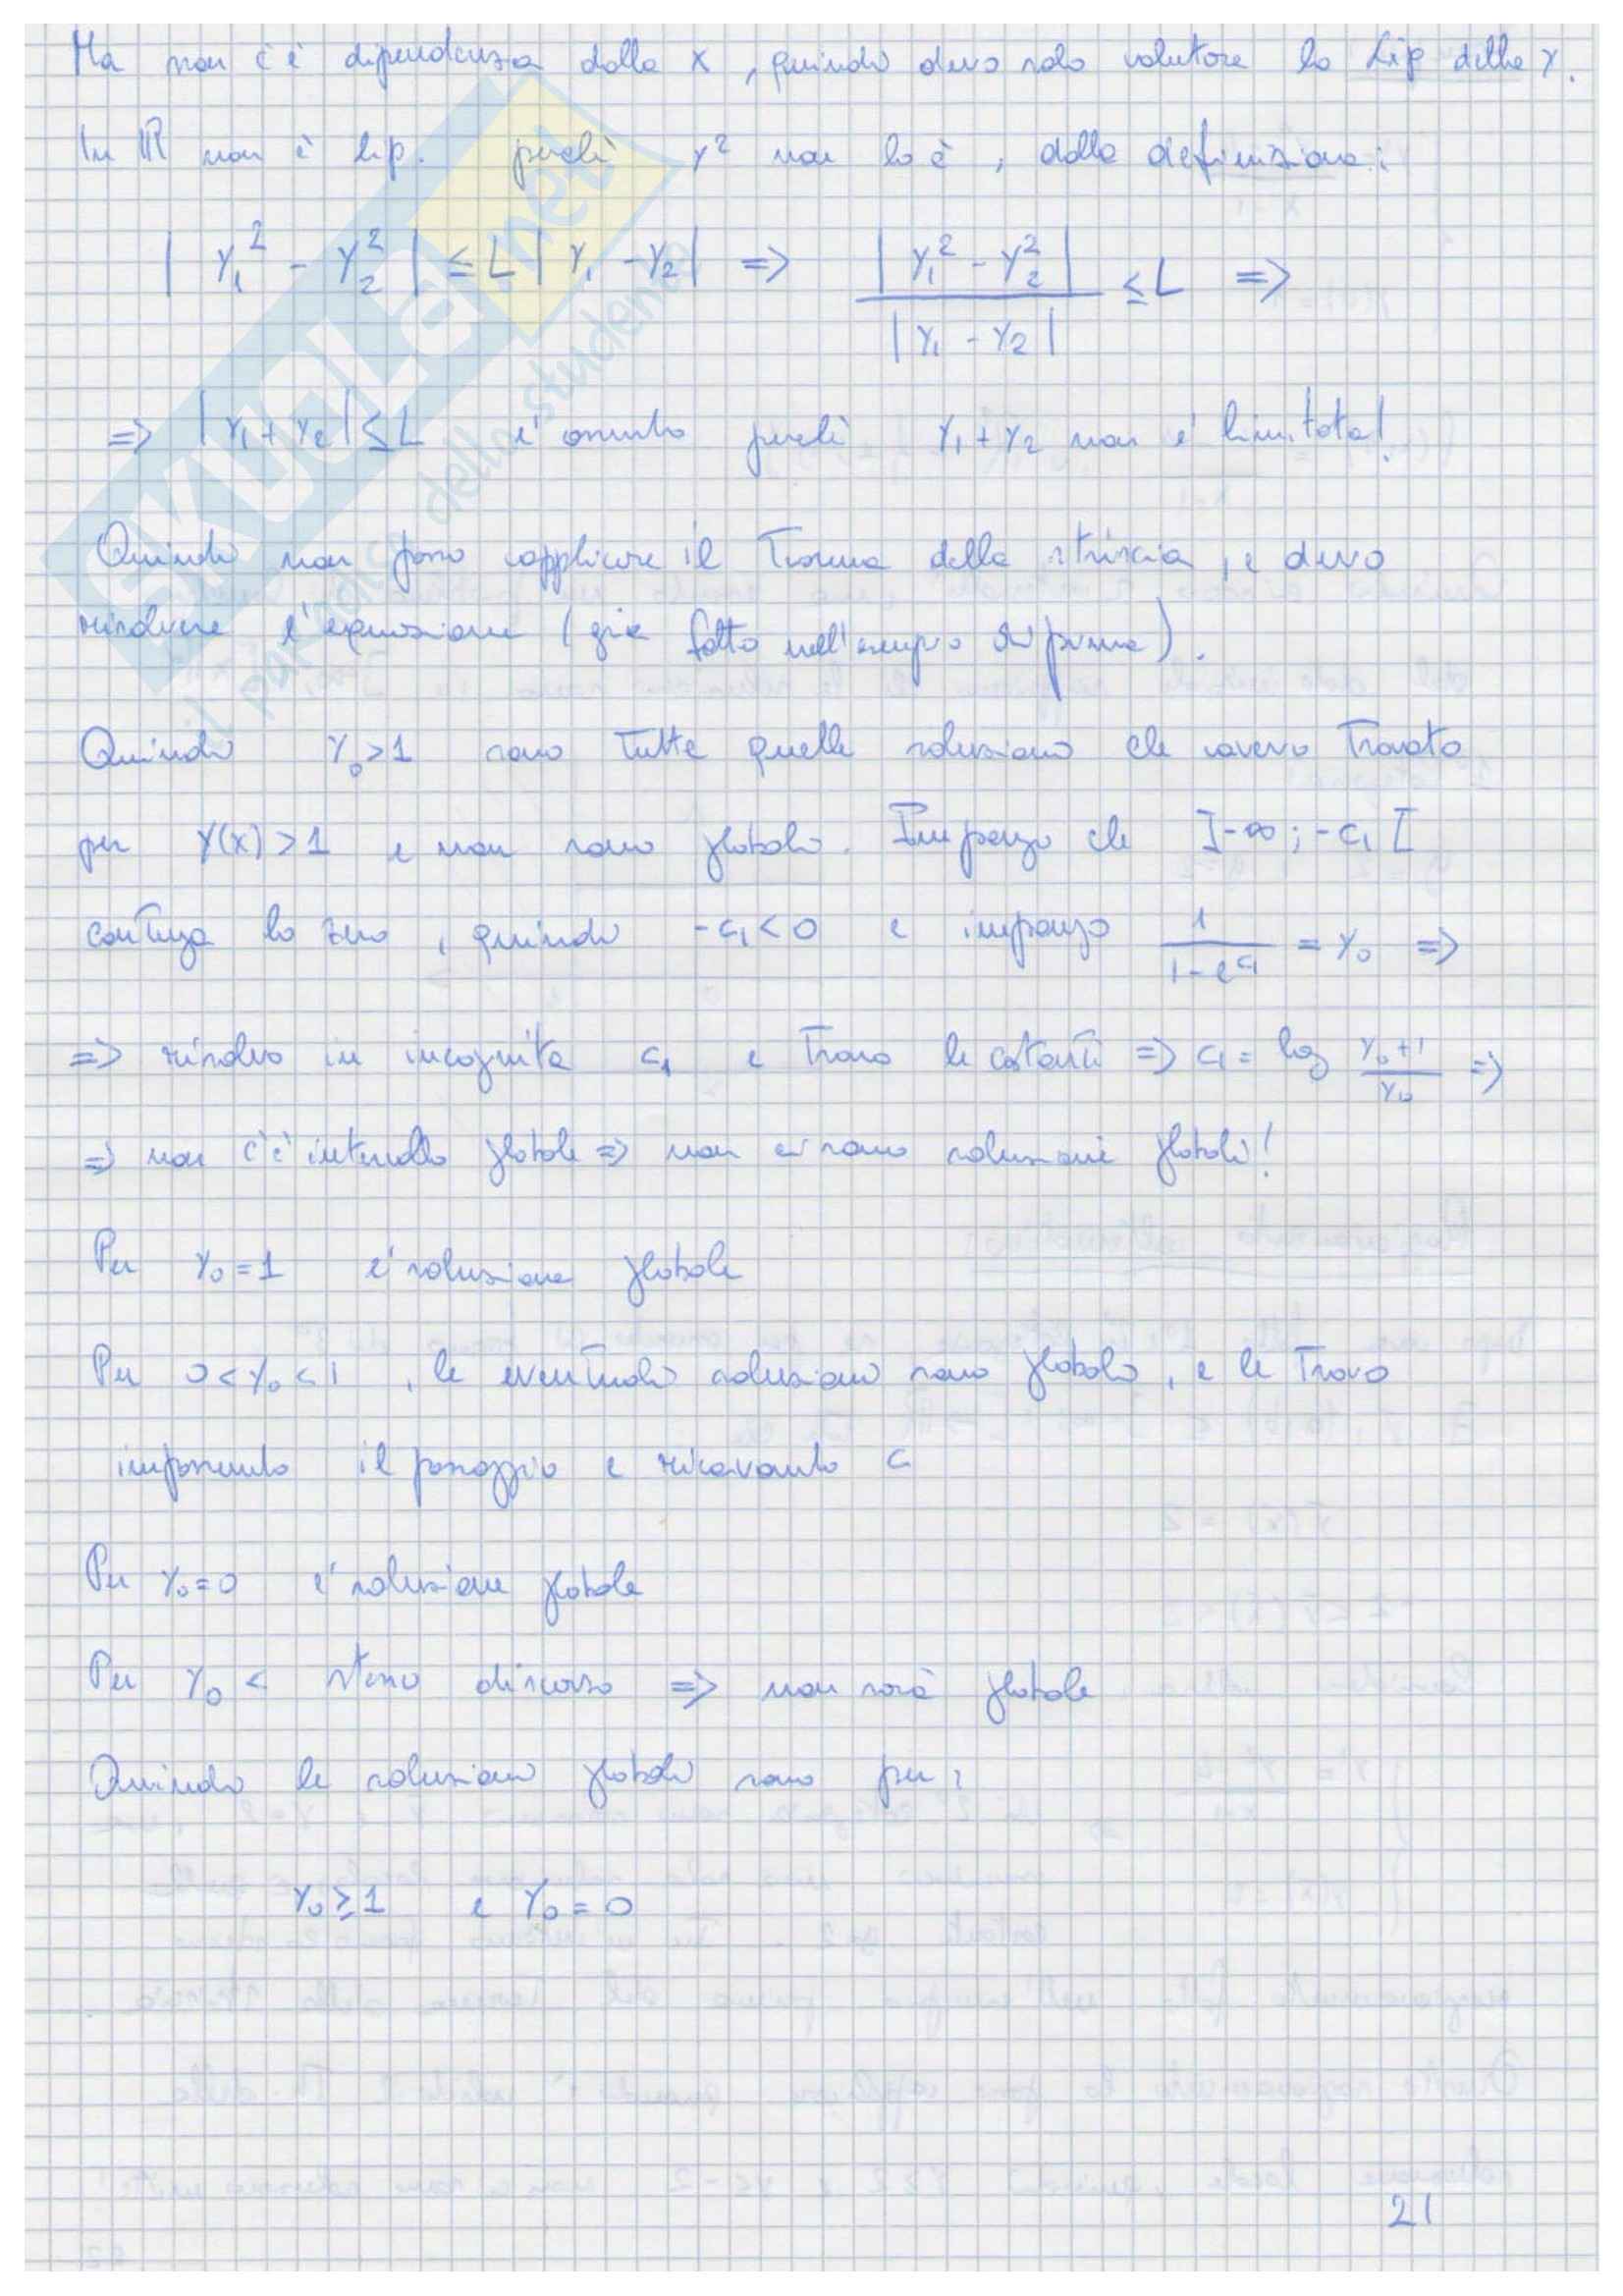 Ma non c'è dipendenza dalla x, quindi devo solo valutare la Lip della y.
In ℝ non è lip. perché y² non lo è, dalla definizione:
| y₁² - y₂² | ≤ L | y₁ - y₂ | => | y₁² - y₂² | / | y₁ - y₂ | ≤ L =>
=> | y₁ + y₂ | ≤ L è assurdo perché y₁ + y₂ non è limitata!
Quindi non posso applicare il Teorema della striscia, e devo
risolvere l'equazione (già fatto nell'esempio di prima).
Quindi y₀ > 1 sono tutte quelle soluzioni che avevo trovato
per y(x) > 1 e non sono globali. Impongo che ]-∞; -c₁[
contenga lo zero, quindi -c₁ < 0 e impongo 1 / (1 - e^c₁) = y₀ =>
=> risolvo in incognita c₁ e trovo le costanti => c₁ = log (y₀ + 1) / y₀ =>
=> non c'è intervallo globale => non ci sono soluzioni globali!
Per y₀ = 1 è soluzione globale
Per 0 < y₀ < 1, le eventuali soluzioni sono globali, e le trovo
imponendo il passaggio e ricavando c₁
Per y₀ = 0 è soluzione globale
Per y₀ < stesso discorso => non sarà globale
Quindi le soluzioni globali sono per:
y₀ ≥ 1 e y₀ = 0
21
SKUOLA.net
il paradiso dello studente